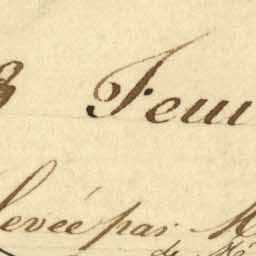 3 Feui
Levée par M
de M